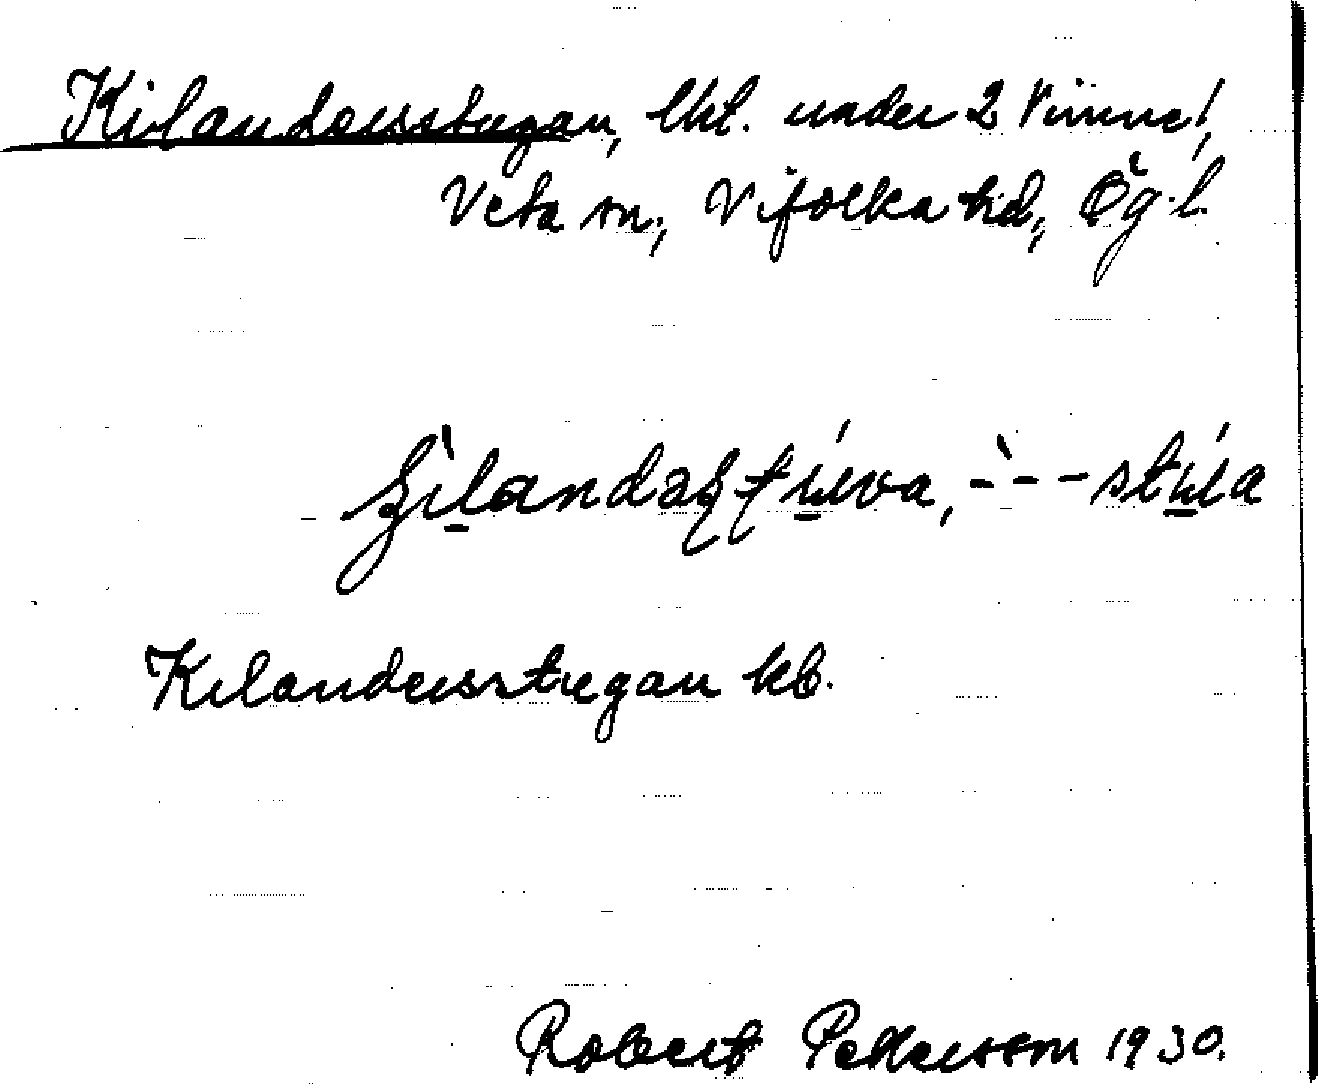 Kilandersstugan, lht. under 2 Vinne!,
Veta sn., Vifolka hd., Ög. l.
Kilandersstugan kb.
Robert Pettersson 1930.